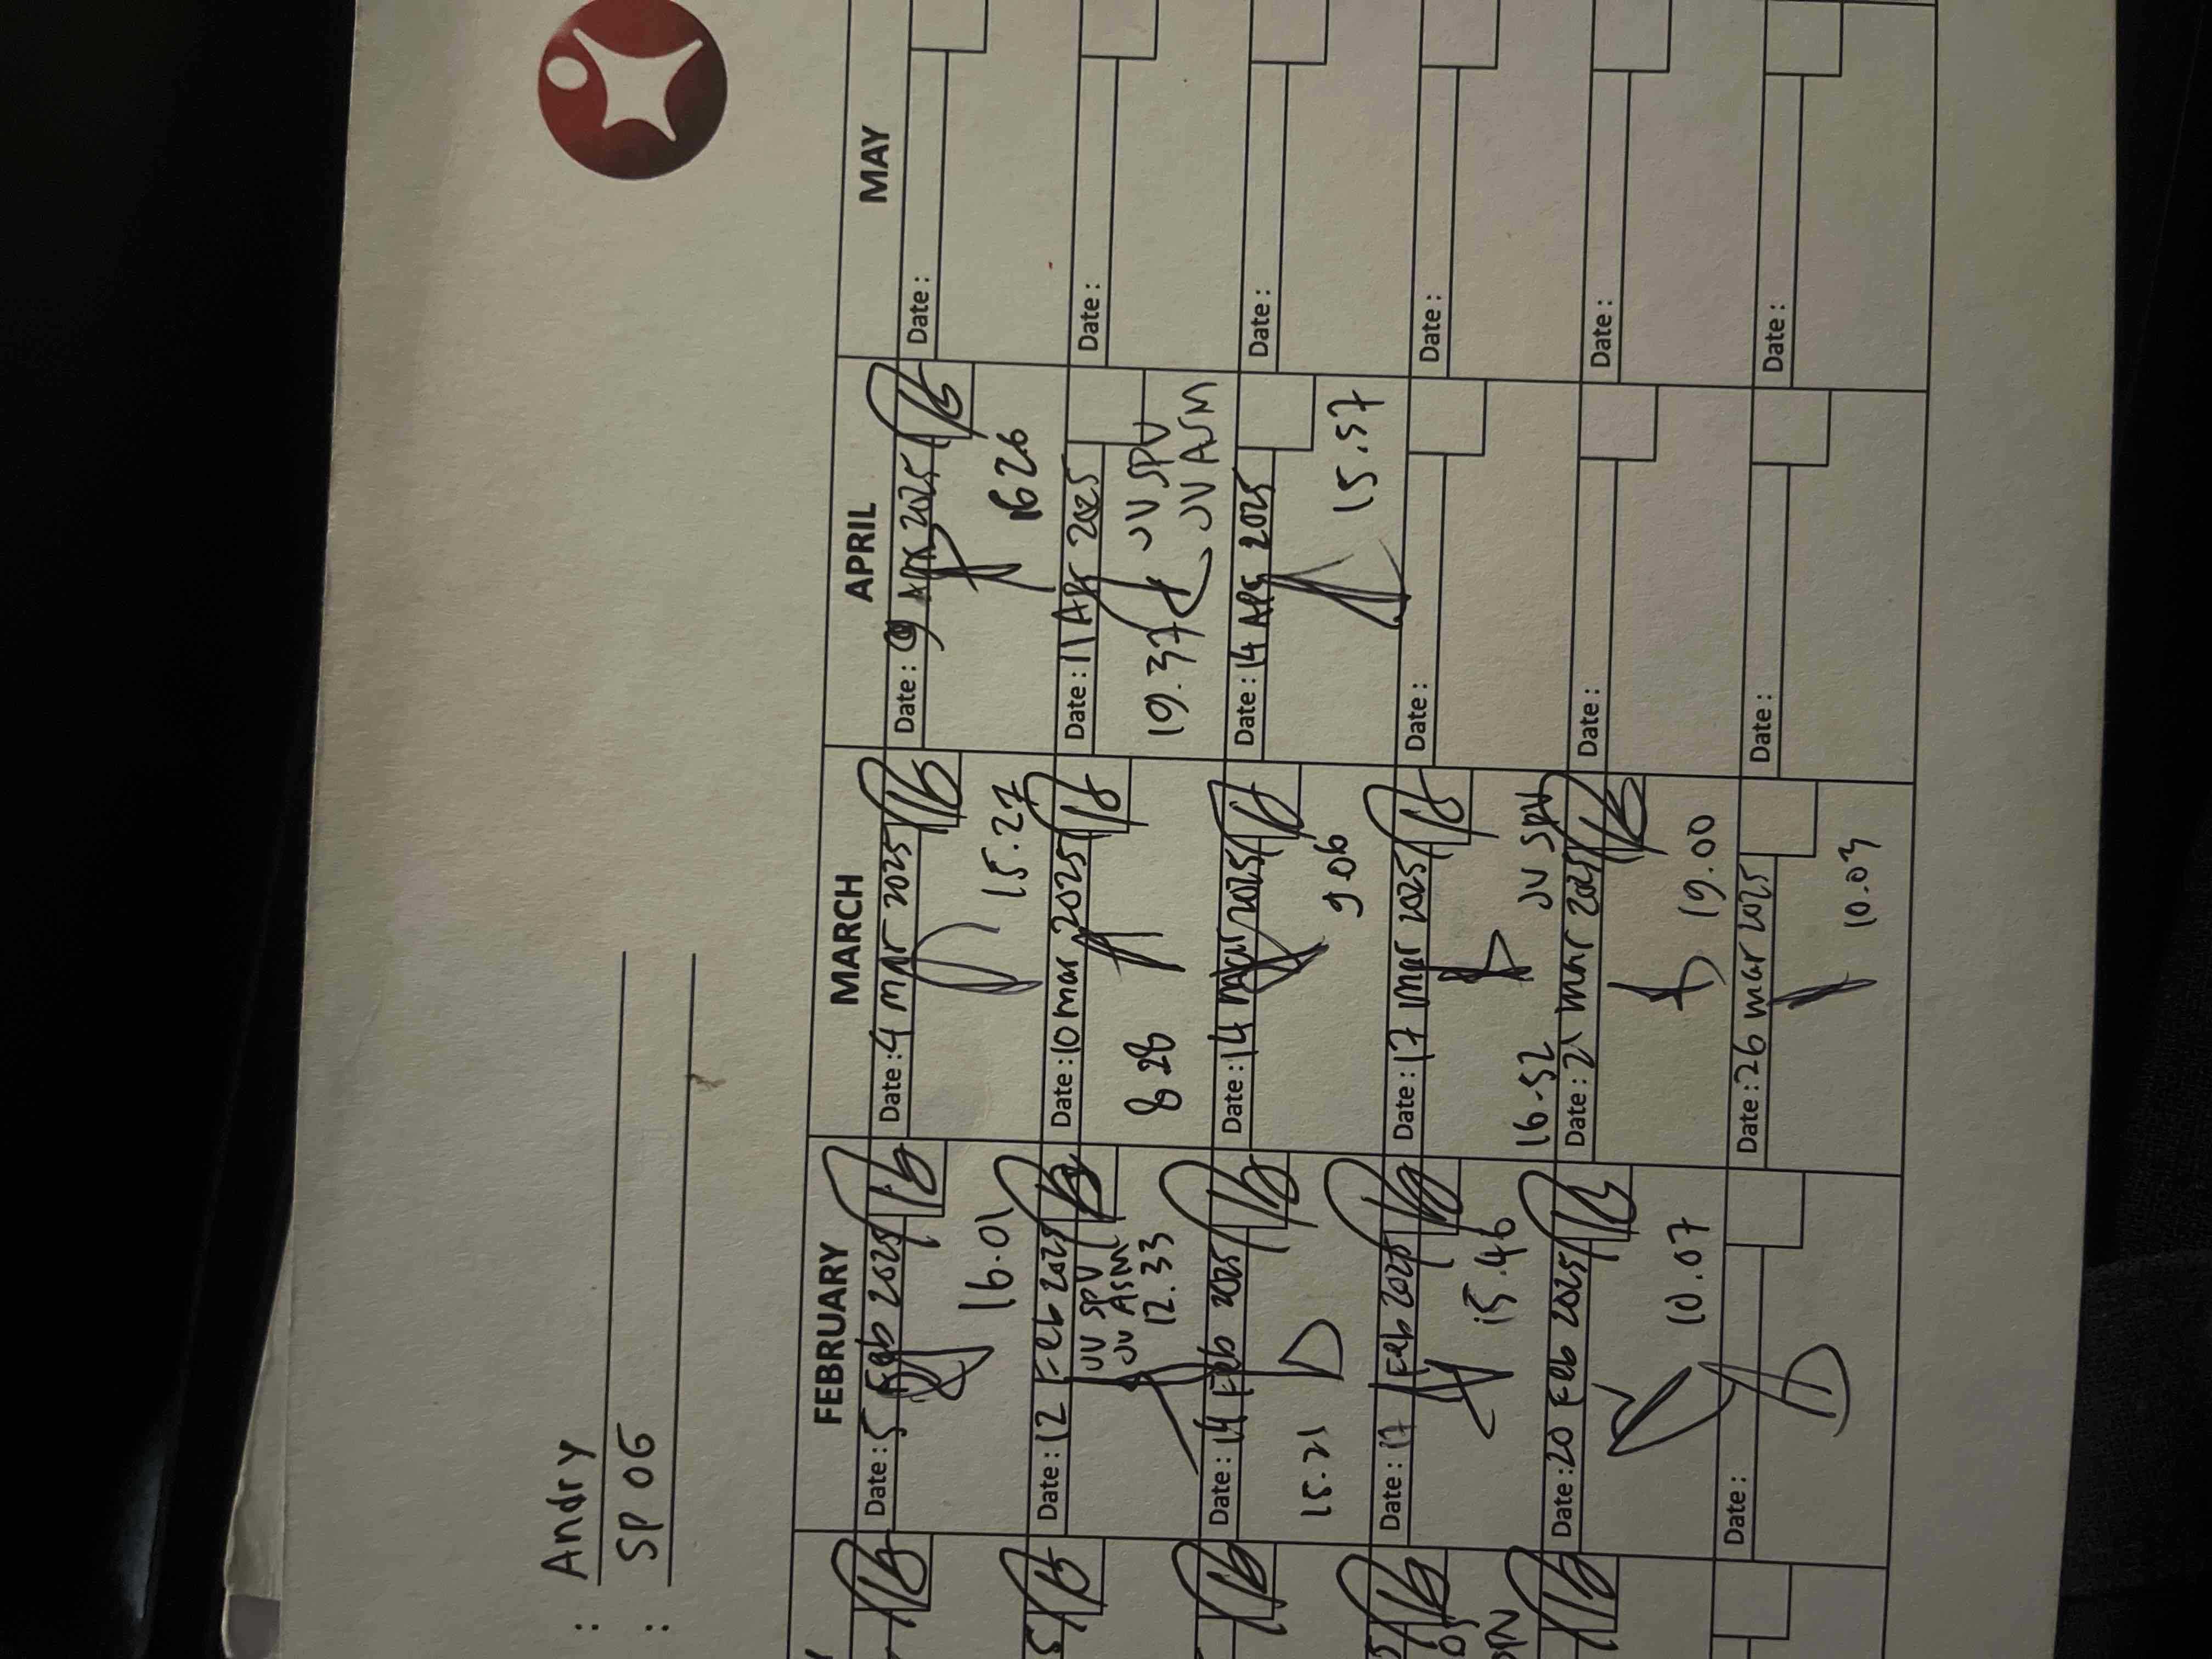 : Andry
: SP 06
FEBRUARY
MARCH
APRIL
MAY
Date : 5 Feb 2025
16.01
Date : 4 Mar 2025
15.27
Date : 9 Apr 2025
1626
Date :
Date : 12 Feb 2025
JV SPV
JV ASM
12.33
Date : 10 Mar 2025
8 28
Date : 11 Apr 2025
19.37
JV SPV
JV ASM
Date :
Date : 14 Feb 2025
15.21
Date : 14 Mar 2025
9 06
Date : 14 Apr 2025
15.57
Date :
Date : 17 Feb 2025
15.46
Date : 17 Mar 2025
16.52
JV SPV
Date :
Date :
Date : 20 Feb 2025
10.07
Date : 21 Mar 2025
19.00
Date :
Date :
Date :
Date : 26 Mar 2025
10.03
Date :
Date :